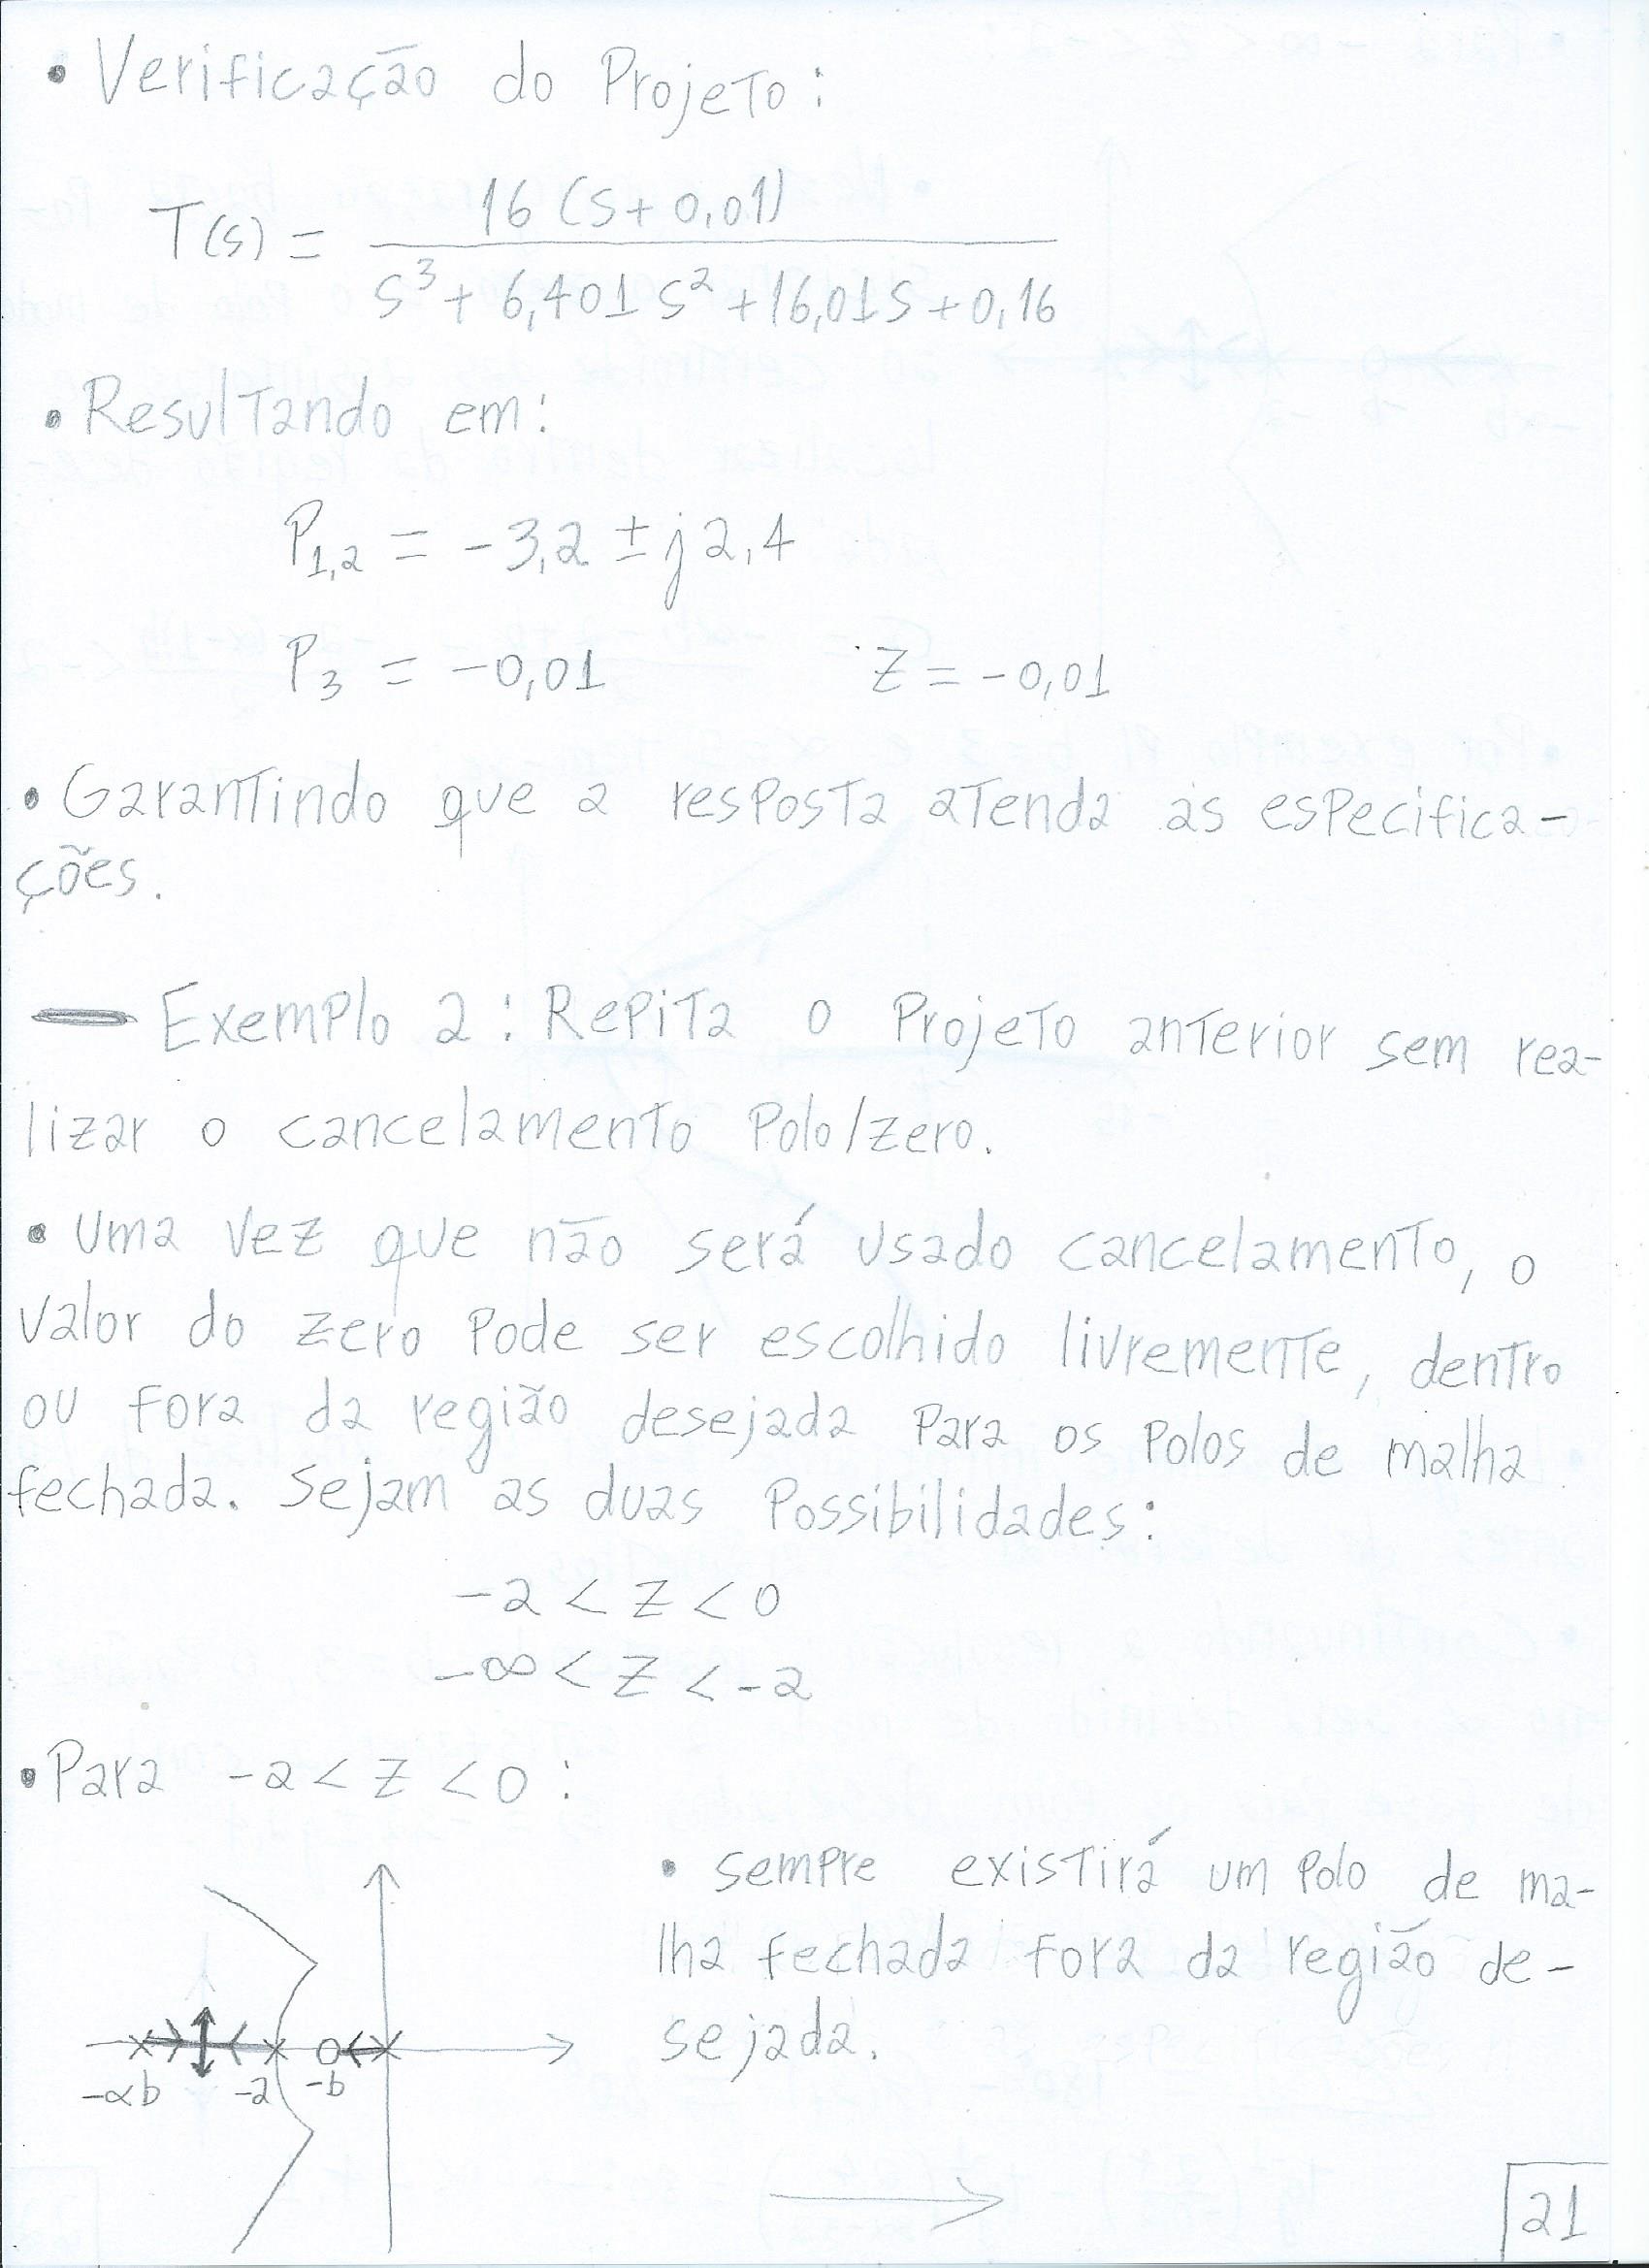 • Verificação do Projeto:
T(s) = 16(s+0,01) / s³+6,401s²+16,01s+0,16
• Resultando em:
P1,2 = -3,2 ± j2,4
P3 = -0,01 Z = -0,01
• Garantindo que a resposta atenda as especifica-
ções.
— Exemplo 2: Repita o Projeto anterior sem rea-
lizar o cancelamento Polo/zero.
• Uma vez que não será usado cancelamento, o
valor do zero Pode ser escolhido livremente, dentro
ou fora da região desejada Para os Polos de malha
fechada. Sejam as duas Possibilidades:
-2 < Z < 0
-∞ < Z < -2
• Para -2 < Z < 0:
• sempre existirá um Polo de ma-
lha fechada fora da região de-
sejada.
-αb -2 -b
21